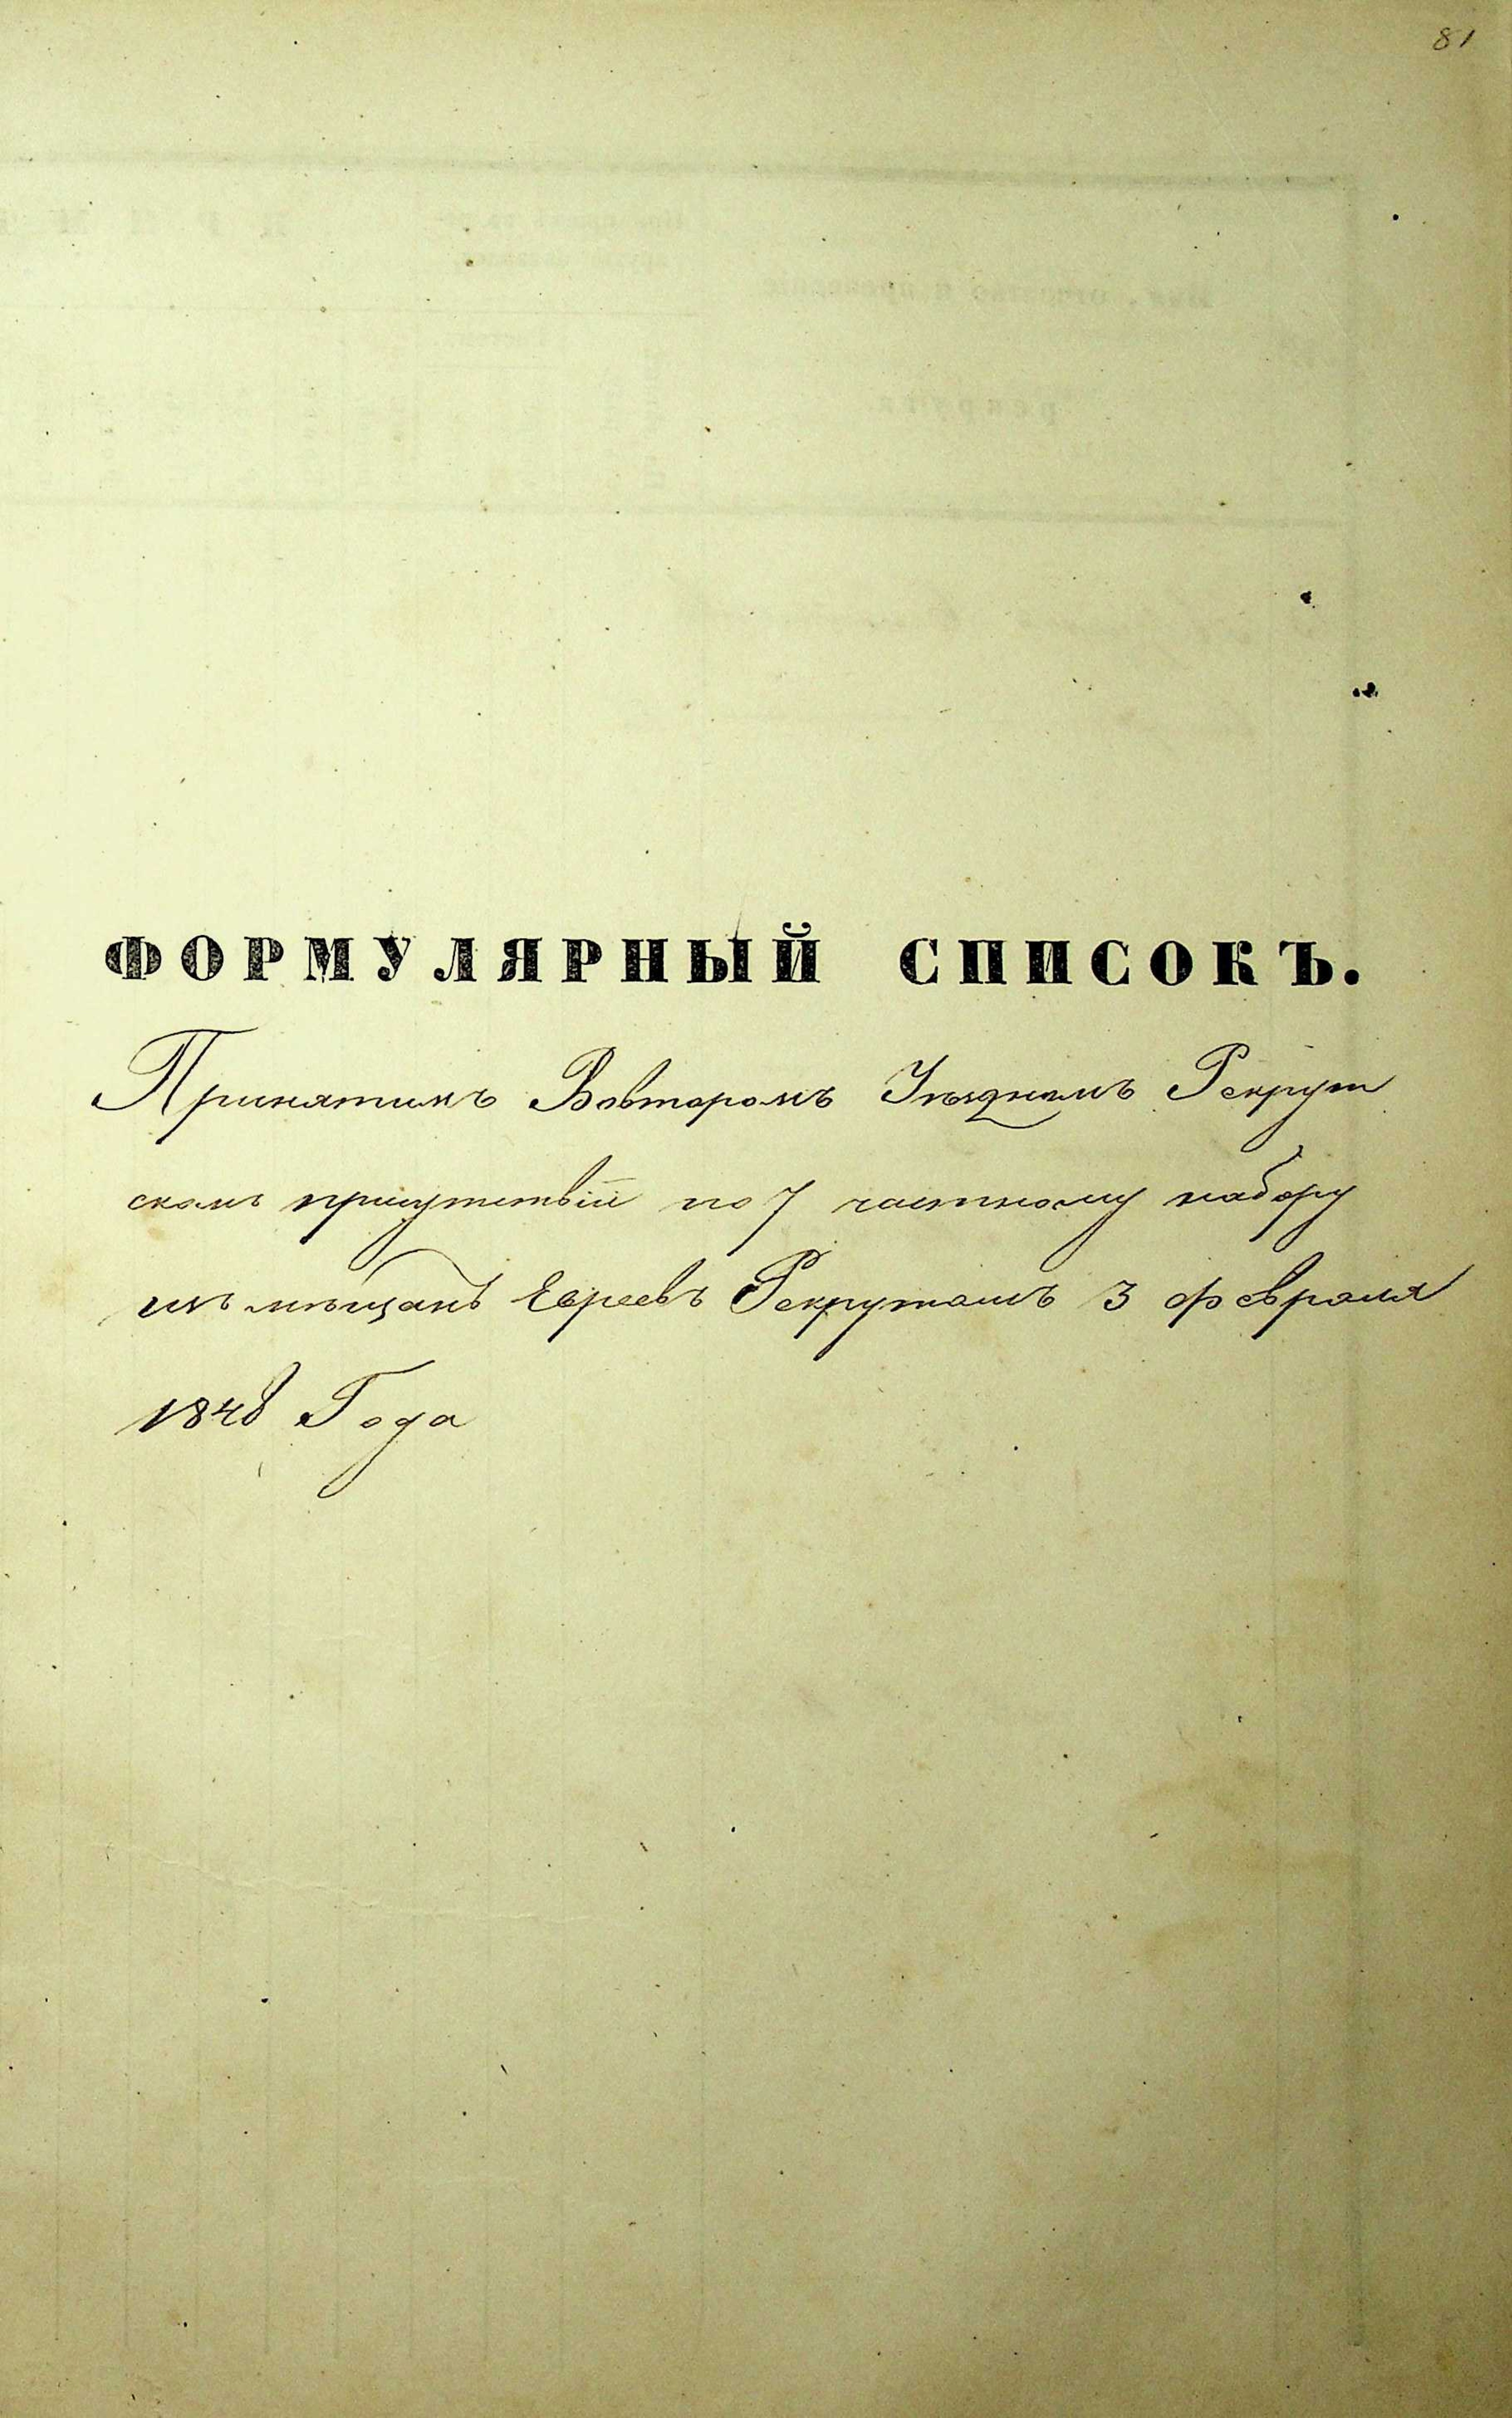 81
ФОРМУЛЯРНЫЙ СПИСОКЪ.
Принятимъ Вовторомъ Уѣздномъ Рекрут
скомъ присутствіи по 7 частному набору
изъ мѣщанъ Евреевъ Рекрутамъ 3 февраля
1848 Года